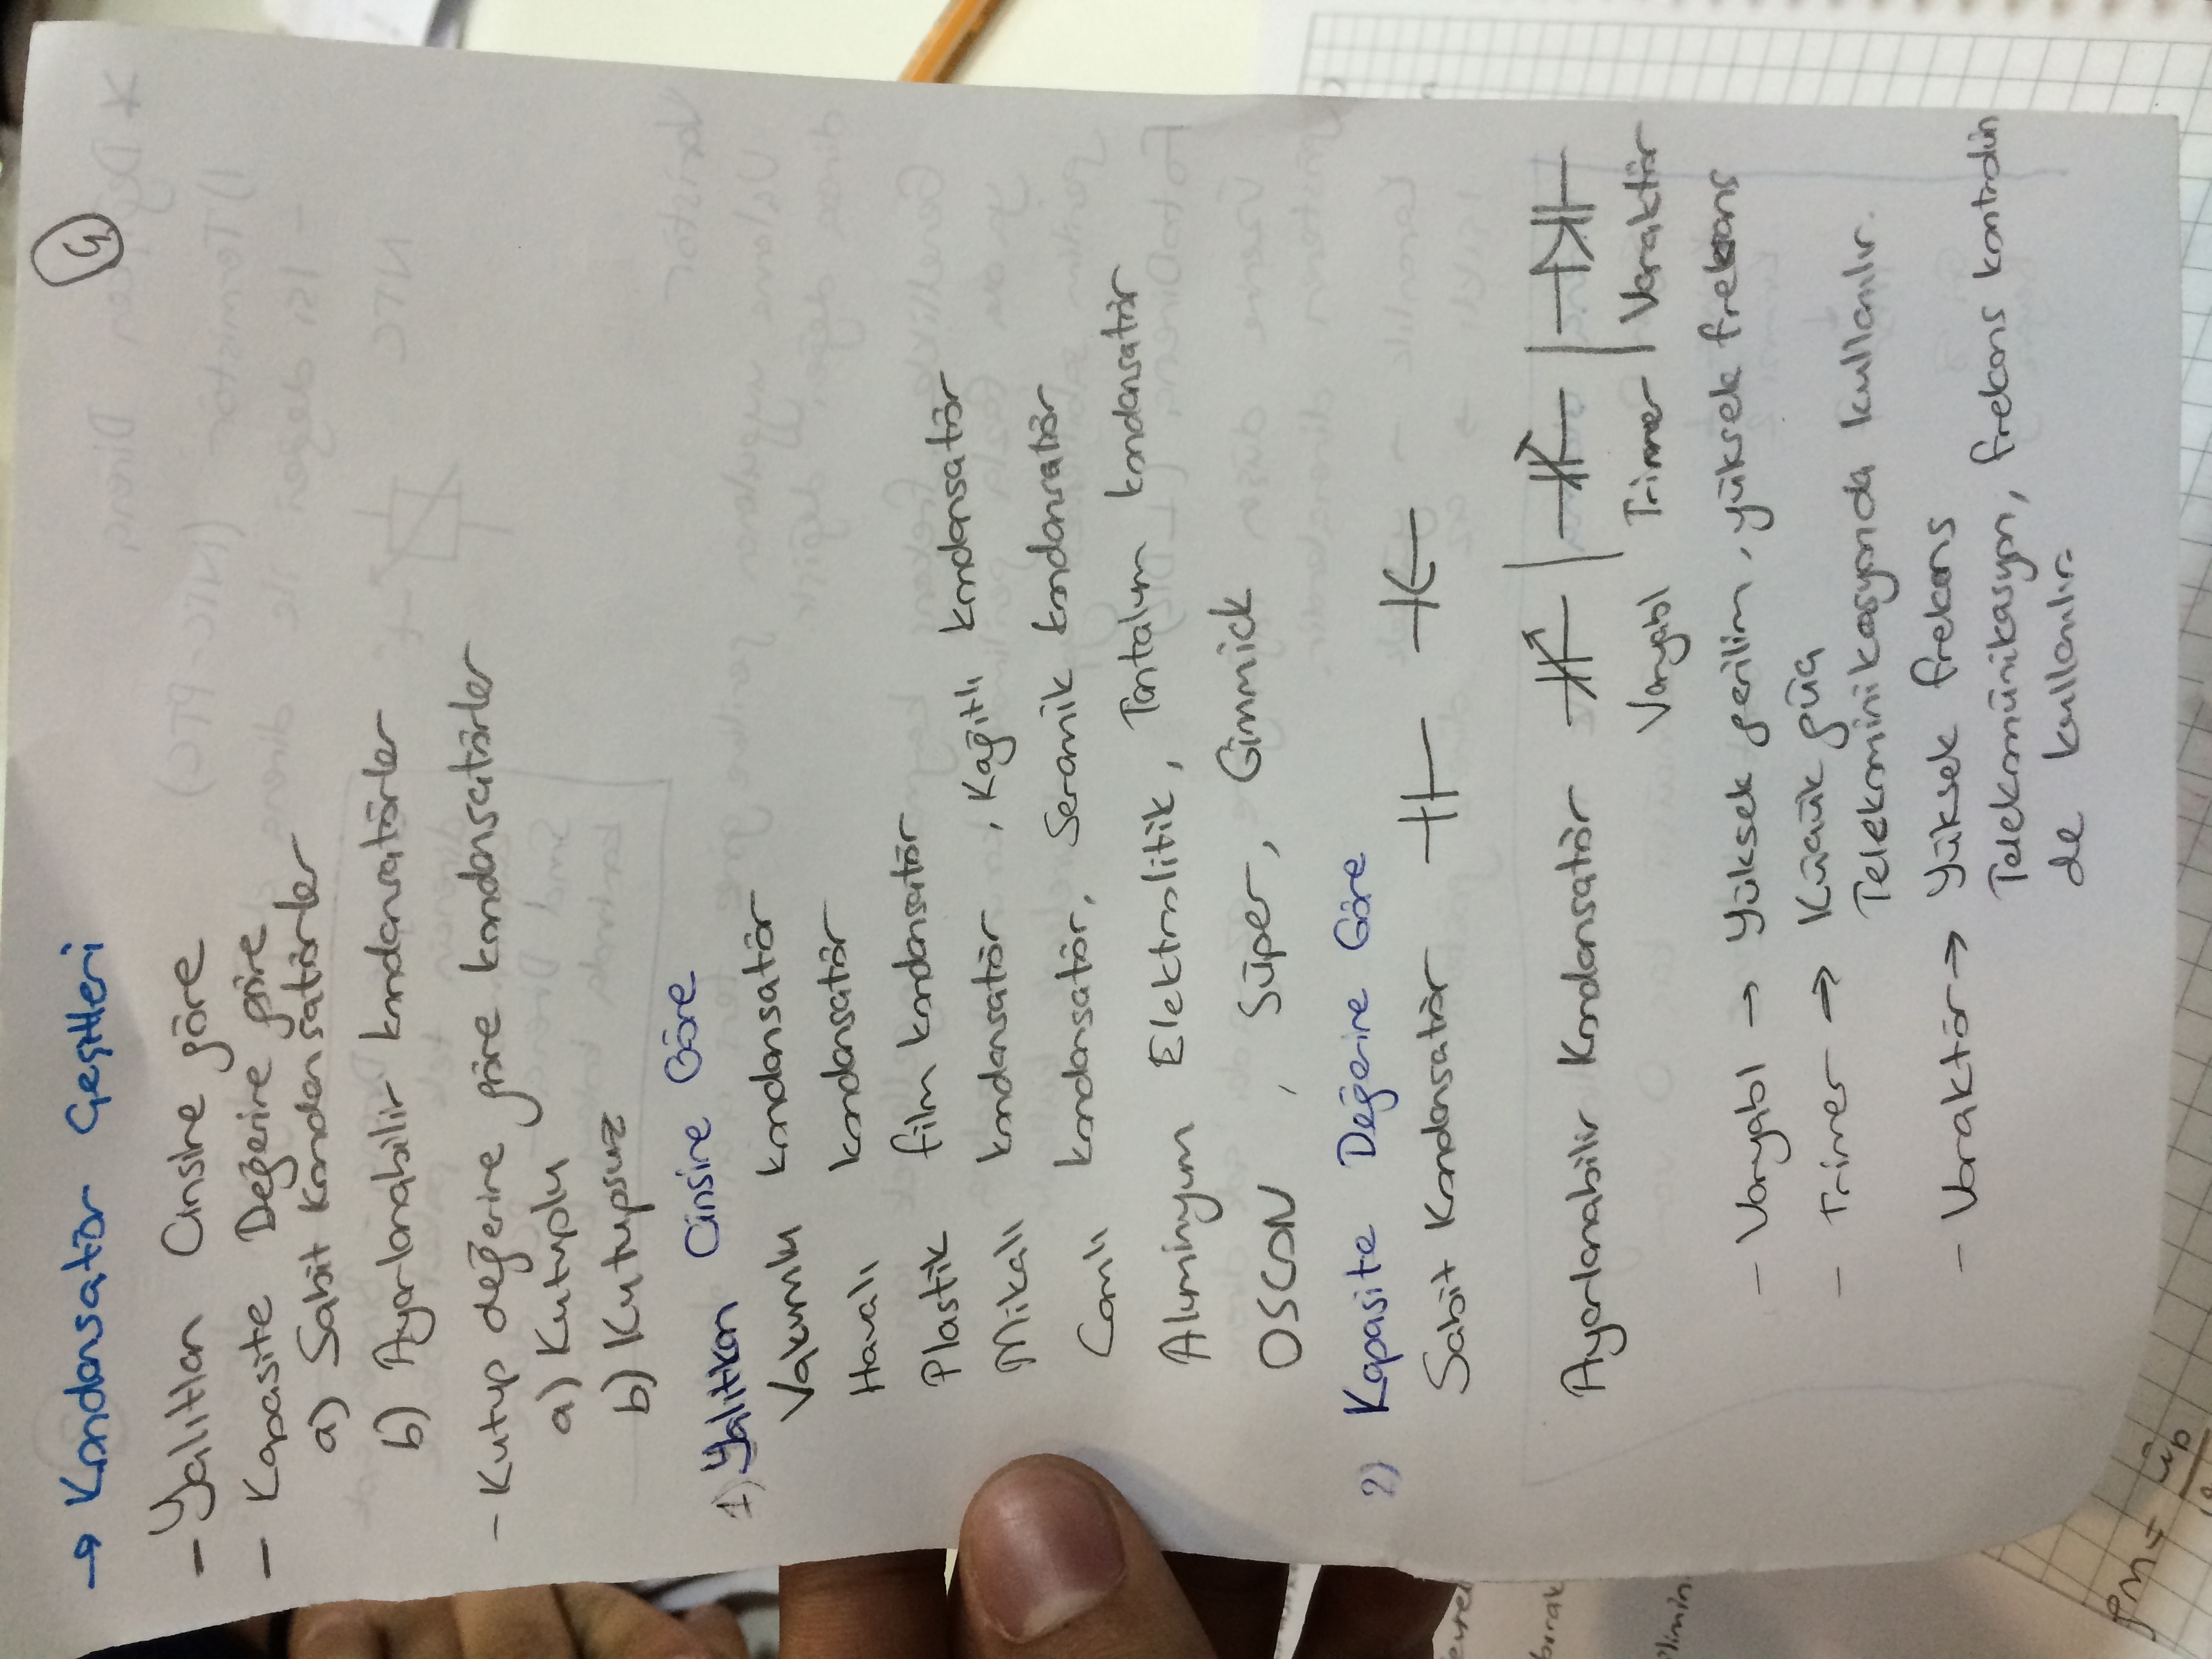 → Kondansatör Çeşitleri
- Yalıtkan Cinsine göre
- Kapasite Değerine göre
a) Sabit Kondansatörler
b) Ayarlanabilir kondansatörler
- Kutup değerine göre kondansatörler
a) Kutuplu
b) Kutupsuz
1) Yalıtkan Cinsine Göre
Vakumlu kondansatör
Havalı kondansatör
Plastik film kondansatör
Mikalı kondansatör , Kağıtlı kondansatör
Camlı kondansatör, Seramik kondansatör
Aluminyum Elektrolitik, Tantalum kondansatör
OSCON , Süper, Gimmick
2) Kapasite Değerine Göre
Sabit Kondansatör
Ayarlanabilir Kondansatör
Varyabl Trimer Varaktör
- Varyabl → Yüksek gerilim, yüksek frekans
- Trimer → Küçük güç
Telekominikasyonda kullanılır.
- Varaktör → Yüksek frekans
Telekomünikasyon, frekans kontrolün
de kullanılır.